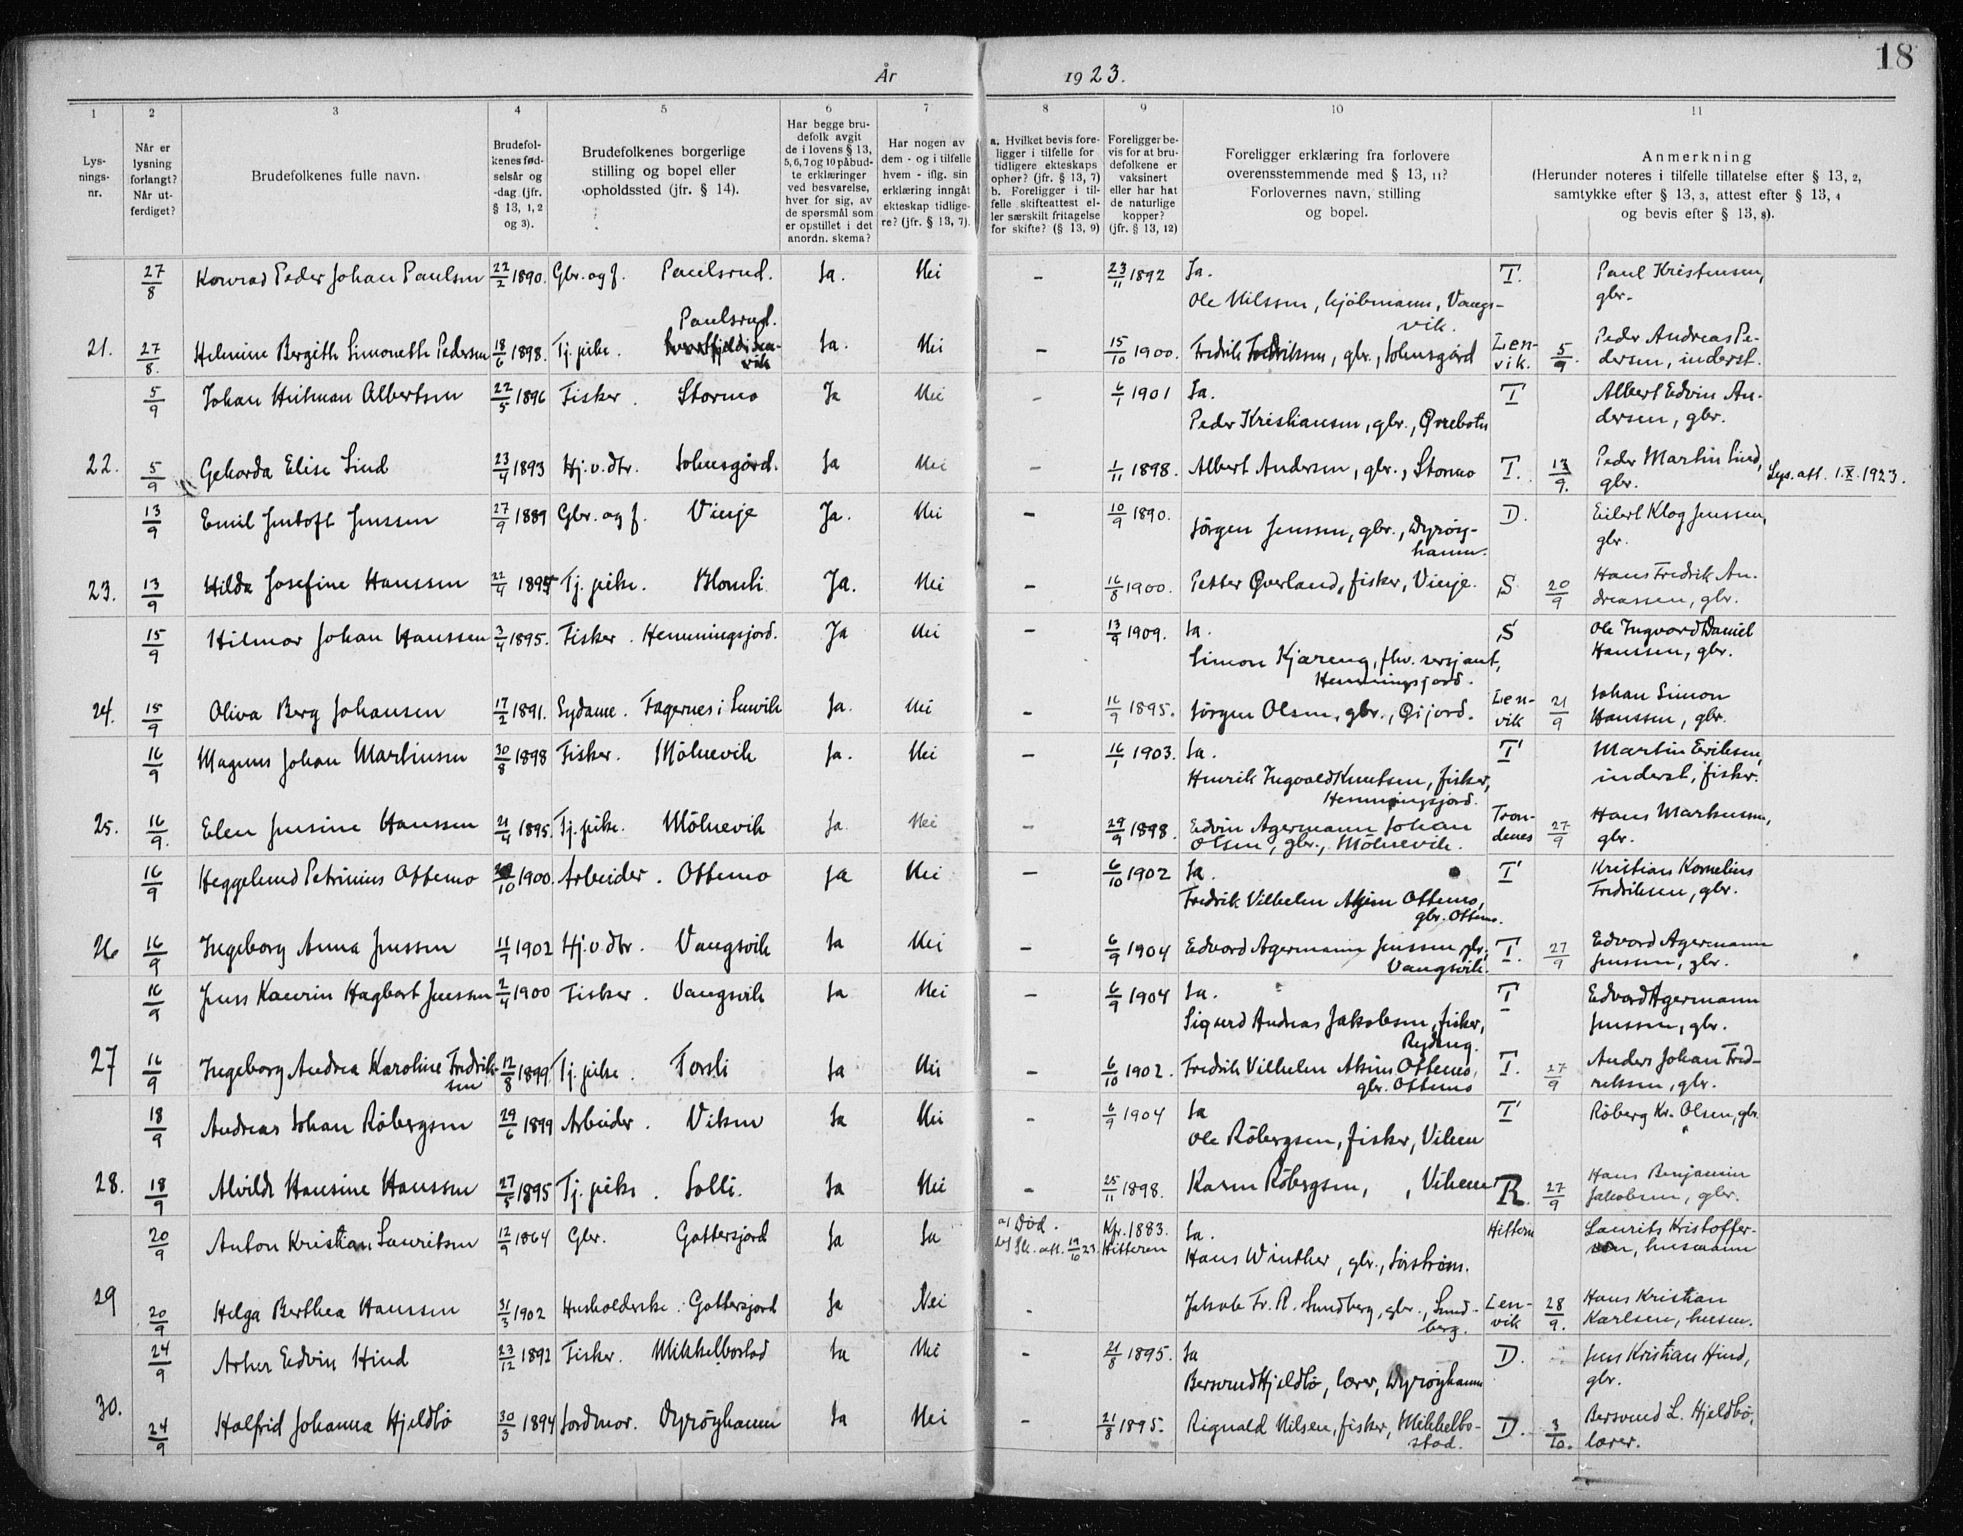 18
År 1923.
1 2 3 4 5 6 7 8 9 10 11
Lysningsnr.
Når er lysning forlangt? Når utferdiget?
Brudefolkenes fulle navn.
Brudefolkenes fødselsår og -dag (jfr. § 13, 1, 2 og 3).
Brudefolkenes borgerlige stilling og bopel eller opholdssted (jfr. § 14).
Har begge brudefolk avgit de i lovens § 13, 5, 6, 7 og 10 påbudte erklæringer ved besvarelse, hver for sig, av de spørsmål som er opstillet i det anordn. skema?
Har nogen av dem - og i tilfelle hvem - iflg. sin erklæring inngåt ekteskap tidligere? (jfr. § 13, 7).
a. Hvilket bevis foreligger i tilfelle for tidligere ekteskaps ophør? (jfr. § 13, 7) b. Foreligger i tilfelle skifteattest eller særskilt fritagelse for skifte? (§ 13, 9)
Foreligger bevis for at brudefolkene er vaksinert eller har hat de naturlige kopper? (jfr. § 13, 12)
Foreligger erklæring fra forlovere overensstemmende med § 13, 11? Forlovernes navn, stilling og bopel.
Anmerkning (Herunder noteres i tilfelle tillatelse efter § 13, 2, samtykke efter § 13, 3, attest efter § 13, 4 og bevis efter § 13, 8).
27/8 Konrad Peder Johan Paulsen 22/2 1890. Gbr. og f. Paulsrud. Ja. Nei - 23/11 1892 Ja. Ole Nilssen, kjøbmann, Vangsvik. T. Paul Kristensen, gbr.
21. 27/8. Helmine Bergith Simonette Pedersen 18/6 1898. Tj. pike. Paulsrud. Ja. Nei - 15/10 1900. Fredrik Fredriksen, gbr., Solensgård Lenvik. 5/9. Peder Andreas Pedersen, inderst.
5/9 Johan Heitman Albertsen 22/5 1896 Fisker. Stormo Ja Nei - 6/1 1901 Ja. Peder Kristiansen, gbr., Ørrebotn T Albert Edvin Andersen, gbr.
22. 5/9 Gehorda Elise Lind 23/4 1893 Hj. v. dtr. Solensgård. Ja Nei - 1/11 1898. Albert Andersen, gbr., Stormo T. 13/9. Peder Martin Lind, gbr. Lys. att. 1.X.1923.
13/9 Emil Jentoft Jenssen 27/9 1889 Gbr. og f. Vinje Ja. Nei - 10/9 1890. Jørgen Jenssen, gbr., Dyrøyhamn. D. Eilert Klog Jenssen, gbr.
23. 13/9 Hilda Josefine Hanssen 22/4 1895 Tj. pike. Blomli Ja. Nei - 16/8 1900. Petter Øverland, fisker, Vinje. S 20/9 Hans Fredrik Andreassen, gbr.
15/9 Hilmar Johan Hanssen 3/4 1895. Fisker. Hemmingsjord. Ja Nei - 13/9 1909. Ja. Simon Kjæreng, fhv. sersjant, Hemmingsjord. S Ole Ingvard Daniel Hanssen, gbr.
24. 15/9 Oliva Berg Johansen 17/2 1891. Sydame. Fagernes i Lenvik Ja. Nei - 16/9 1895. Jørgen Olsen, gbr., Øijord. Lenvik 21/9 Johan Simon Hanssen, gbr.
16/9 Magnus Johan Martinsen 30/8 1898 Fisker. Mølnevik Ja. Nei - 16/1 1903. Ja. Henrik Ingvald Knutsen, fisker, Hemmingsjord. T Martin Eriksen, inderst, fisker.
25. 16/9. Elen Jensine Hanssen 21/4 1895. Tj. pike. Mølnevik Ja Nei - 29/9 1898. Edvin Agermann Johan Olsen, gbr., Mølnevik. Trondenes 27/9 Hans Markussen, gbr.
16/9 Heggelund Petrinius Ottemo /10 1900. Arbeider. Ottemo Ja Nei - 6/10 1902 Ja. Fredrik Vilhelm Akim Ottemo, gbr. Ottemo. T Kristian Kornelius Fredriksen, gbr.
26 16/9 Ingeborg Anna Jenssen 11/7 1902 Hj. v. dtr. Vangsvik Ja Nei - 6/9 1904 Edvard Agermann Jenssen gbr., Vangsvik. T. 27/9 Edvard Agermann Jenssen, gbr.
16/9 Jens Kaurin Hagbart Jenssen 2/4 1900 Fisker. Vangsvik Ja Nei - 6/9 1904 Ja. Sigurd Andreas Jakobsen, fisker, Rydeng. T Edvard Agermann Jenssen, gbr.
27 16/9 Ingeborg Andrea Karoline Fredriksen 12/8 1899. Tj. pike. Forsli Ja Nei - 6/10 1902. Fredrik Vilhelm Akim Ottemo, gbr. Ottemo T. 27/9 Anders Johan Fredriksen, gbr.
18/9 Andreas Johan Røbergsen 29/6 1899 Arbeider. Viken Ja Nei - 6/9 1904 Ja Ole Røbergsen, fisker, Viken T Røberg Kr. Olsen, gbr.
28. 18/9 Alvilde Hansine Hanssen 27/5 1895 Tj. pike. Solli. Ja Nei - 25/11 1898. Karen Røbergsen, , Viken R. 27/9 Hans Benjamin Jakobsen, gbr.
20/9 Anton Kristian Lauritsen 12/9 1864 Gbr. Gottersjord Ja Ja a) Død. b) Sk. att. 19/10 23. Kfr. 1883. Hitteren Ja. Hans Winther, gbr., Sørstrøm. Hitteren Laurits Kristoffersen, husmann
29 20/9 Helga Berthea Hanssen 31/3 1902 Husholderske. Gottersjord Ja Nei - Jakob Fr. R. Sundberg, gbr., Sundberg. Lenvik 28/9. Hans Kristian Karlsen, husm.
24/9 Arher Edvin Hind 23/12 1892 Fisker. Mikkelbostad Ja Nei - 21/8 1895. Ja Bersvend Hjeldbø, lærer, Dyrøyhamn D. Jens Kristian Hind, gbr.
30. 24/9 Halfrid Johanna Hjeldbø 30/3 1894 Jordmor. Dyrøyhamn Ja Nei - 21/8 1895. Rignald Nilsen, fisker, Mikkelbostad. D. 3/10. Bersvend L. Hjeldbø, lærer.